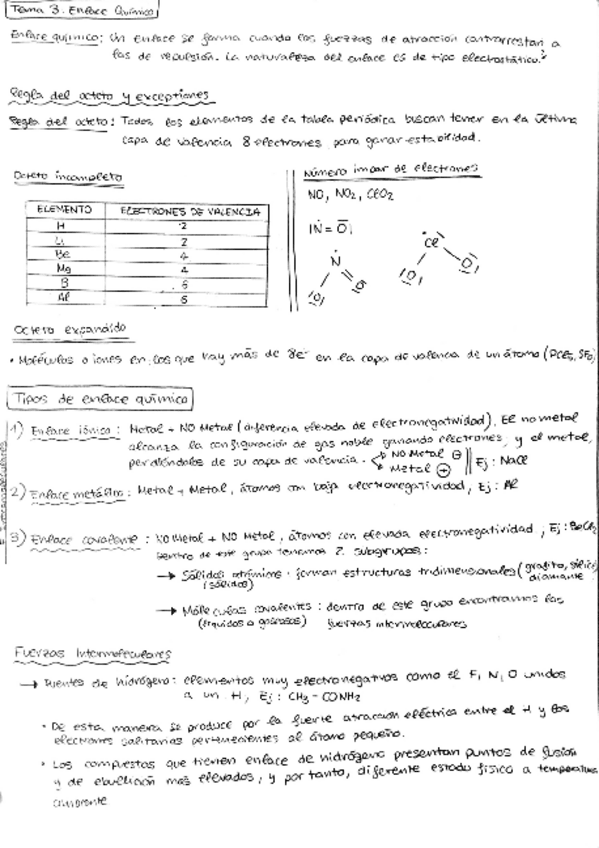 Tema 3. Enlace Químico
Enlace químico: Un enlace se forma cuando las fuerzas de atracción contrarrestan a
las de repulsión. La naturaleza del enlace es de tipo electrostático.
Regla del octeto y excepciones
Regla del octeto: Todos los elementos de la tabla periódica buscan tener en la última
capa de valencia 8 electrones para ganar estabilidad.
Octeto incompleto
ELEMENTO ELECTRONES DE VALENCIA
H 2
Li 2
Be 4
Mg 4
B 6
Al 6
Número impar de electrones
NO, NO2, ClO2
N = O
N
O O
Cl
O O
Octeto expandido
• Moléculas o iones en los que hay más de 8e- en la capa de valencia de un átomo (PCl5, SF6)
Tipos de enlace químico
1) Enlace iónico: Metal + NO Metal (diferencia elevada de electronegatividad). El no metal
alcanza la configuración de gas noble ganando electrones, y el metal,
perdiéndolos de su capa de valencia. NO Metal ⊖
Metal ⊕ Ej: NaCl
2) Enlace metálico: Metal + Metal, átomos con baja electronegatividad, Ej: Al
3) Enlace covalente: NO Metal + NO Metal, átomos con elevada electronegatividad, Ej: BeCl2
Dentro de este grupo tenemos 2 subgrupos:
→ Sólidos atómicos: forman estructuras tridimensionales (grafito, sílice,
(sólidos) diamante
→ Moléculas covalentes: dentro de este grupo encontramos las
(líquidos o gaseosos) fuerzas intermoleculares
Intramoleculares
Fuerzas Intermoleculares
→ Puentes de hidrógeno: elementos muy electronegativos como el F, N, O unidos
a un H, Ej: CH3-CONH2
• De esta manera se produce por la fuerte atracción eléctrica entre el H y los
electrones solitarios pertenecientes al átomo pequeño.
• Los compuestos que tienen enlace de hidrógeno presentan puntos de fusión
y de ebullición más elevados, y por tanto, diferente estado físico a temperatura
ambiente